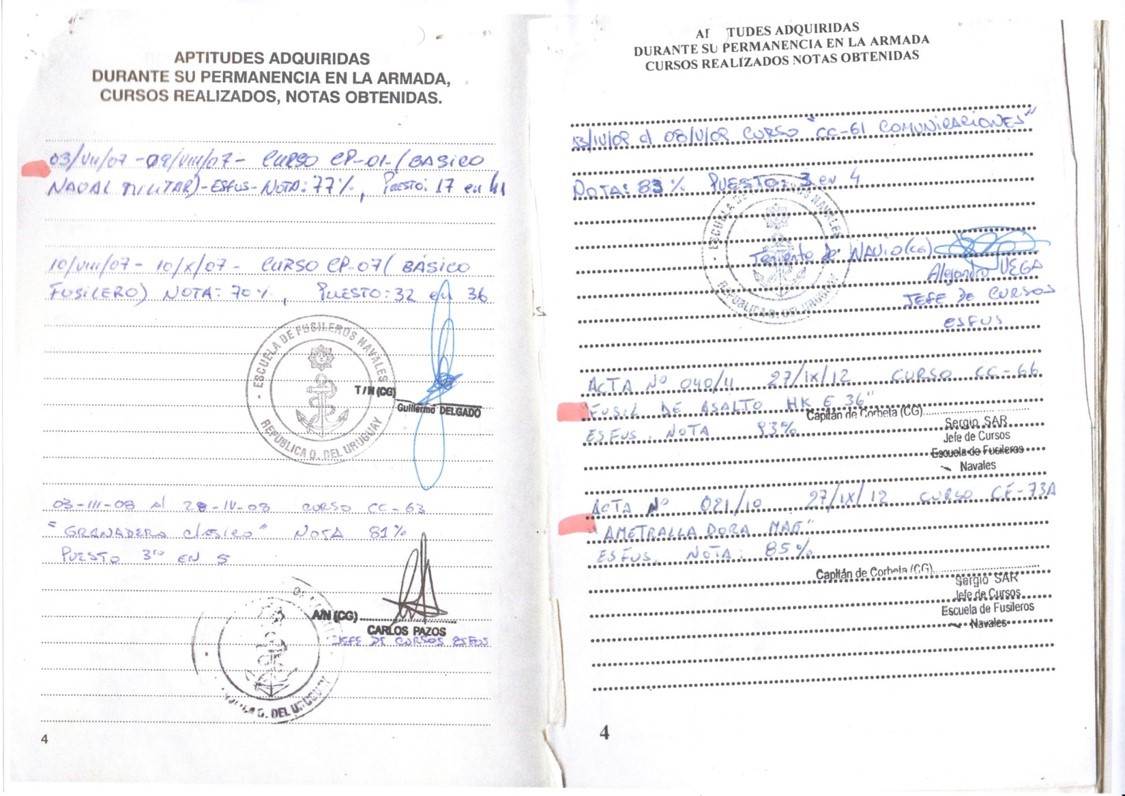 APTITUDES ADQUIRIDAS
DURANTE SU PERMANENCIA EN LA ARMADA,
CURSOS REALIZADOS, NOTAS OBTENIDAS.
03/VII/07 -09/VIII/07- CURSO CP-01-(BÁSICO
NAVAL MILITAR)-ESFUS-NOTA: 77%, PUESTO: 17 en 41
10/VIII/07 - 10/X/07 - CURSO CP-07( BÁSICO
FUSILERO) NOTA: 70%, PUESTO: 32 en 36
· ESCUELA DE FUSILEROS NAVALES ·
REPUBLICA O. DEL URUGUAY
T/N (CG)
Guillermo DELGADO
03-III-08 al 28-IV-08 CURSO CC-63
"GRANADERO Clásico" NOTA 81%
PUESTO 3ro EN 5
A/N (CG)
CARLOS PAZOS
JEFE DE CURSOS ESFUS
O. DEL URUGUAY
4
TUDES ADQUIRIDAS
DURANTE SU PERMANENCIA EN LA ARMADA
CURSOS REALIZADOS NOTAS OBTENIDAS
al 08/V/09 CURSO "CC-61 COMUNICACIONES"
NOTA: 83% PUESTO: 3 en 4
REPUBLICA O. DEL URUGUAY
Teniente de NAVIO (CG)
Alejandro VEGA
JEFE DE CURSOS
ESFUS
ACTA Nº 040/11 27/IX/12 CURSO CC-66
"FUSIL DE ASALTO HK G 36"
Capitán de Corbeta (CG)
ESFUS. NOTA 93%
Sergio SAR
Jefe de Cursos
Escuela de Fusileros
Navales
ACTA Nº 021/10 27/IX/12 CURSO CE-73A
"AMETRALLADORA MAG"
ESFUS. NOTA: 85%
Capitán de Corbeta (CG)
Sergio SAR
Jefe de Cursos
Escuela de Fusileros
Navales
4